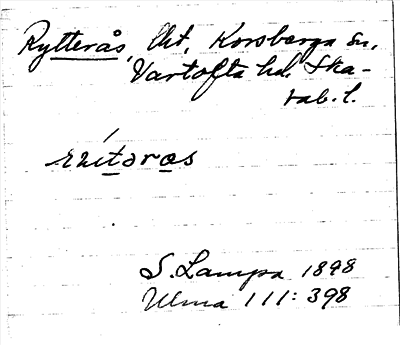 Rytterås, Uht, Korsberga sn,
Vartofta hd. Ska-
rab. l.
rúitəras
S. Lampa 1898
Ulma 111: 398